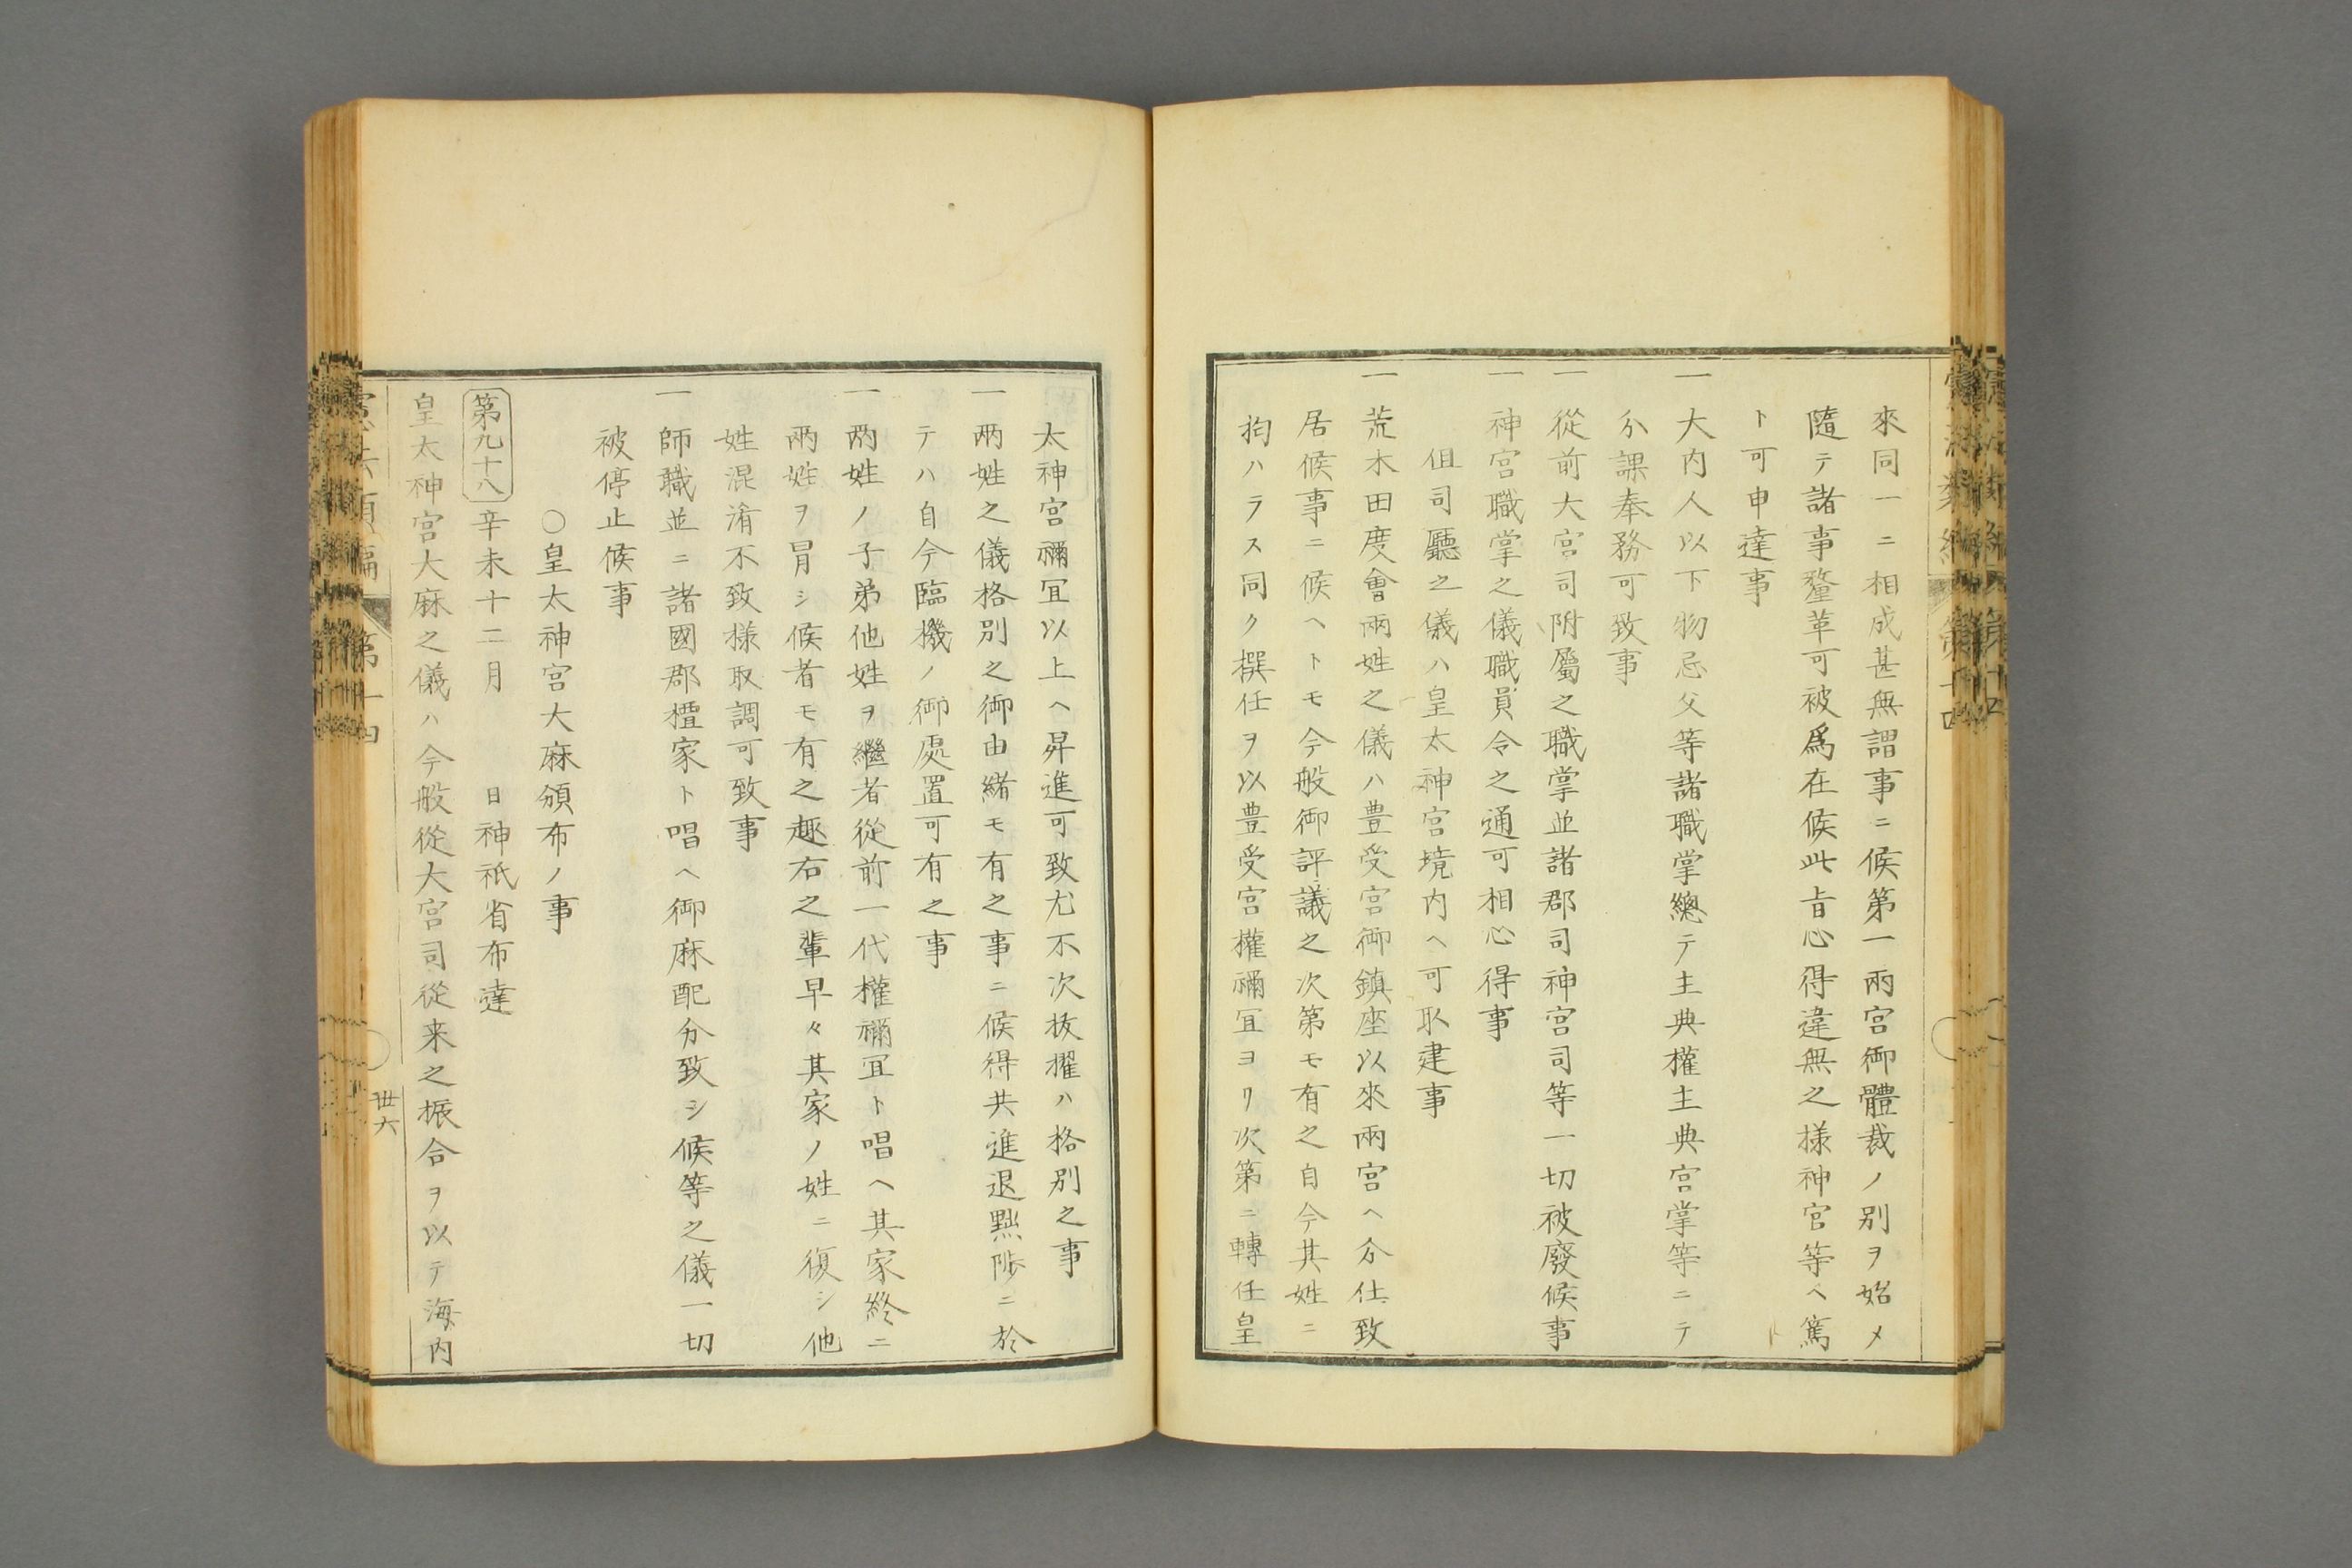 來同一ニ相成甚無謂事ニ候第一兩宮御體裁ノ別ヲ始メ
隨テ諸事釐革可被爲在候此旨心得違無之樣神官等ヘ篤
ト可申達事
一大内人以下物忌父等諸職掌總テ主典權主典宮掌等ニテ
分課奉務可致事
一從前大宮司附屬之職掌並諸郡司神宮司等一切被廢候事
一神宮職掌之儀職員令之通可相心得事
但司廳之儀ハ皇太神宮境内ヘ可取建事
一荒木田度會兩姓之儀ハ豊受宮御鎮座以來兩宮ヘ分仕致
居候事ニ候ヘトモ今般御評議之次第モ有之自今其姓ニ
拘ハラス同ク撰任ヲ以豊受宮權禰冝ヨリ次第ニ轉任皇
太神宮禰冝以上ヘ昇進可致尤不次抜擢ハ格別之事
一兩姓之儀格別之御由緒モ有之事ニ候得共進退黜陟ニ於
テハ自今臨機ノ御處置可有之事
一兩姓ノ子弟他姓ヲ繼者從前一代權禰冝ト唱ヘ其家終ニ
兩姓ヲ冐シ候者モ有之趣右之輩早々其家ノ姓ニ復シ他
姓混淆不致樣取調可致事
一師職並ニ諸國郡檀家ト唱ヘ御麻配分致シ候等之儀一切
被停止候事
〇皇太神宮大麻頒布ノ事
第九十八 辛未十二月 日神祇省布達
皇太神宮大麻之儀ハ今般從大宮司從来之振合ヲ以テ海内
憲法類編 第十四
丗六